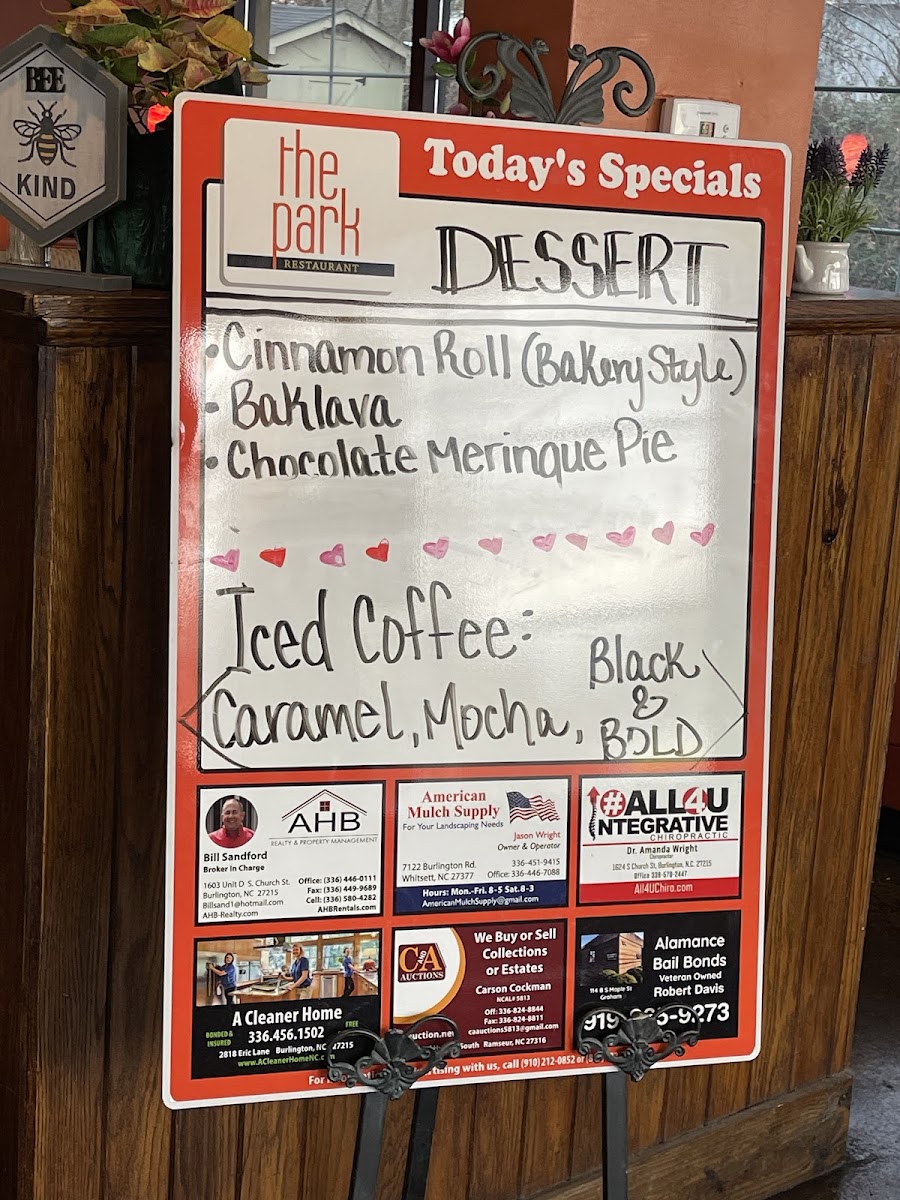 BEE
KIND
the
park
RESTAURANT
Today's Specials
DESSERT
• Cinnamon Roll (Bakery Style)
• Baklava
• Chocolate Meringue Pie
Iced Coffee:
Caramel, Mocha, Black
&
BOLD
Bill Sandford
Broker in Charge
AHB
REALTY & PROPERTY MANAGEMENT
1603 Unit D S. Church St.
Burlington, NC 27215
Billsand1@hotmail.com
AHB-Realty.com
Office: (336) 446-0111
Fax: (336) 449-9689
Cell: (336) 580-4282
AHBRentals.com
American
Mulch Supply
For Your Landscaping Needs
Jason Wright
Owner & Operator
7122 Burlington Rd.
Whitsett, NC 27377
336-451-9415
Office: 336-446-7088
Hours: Mon.-Fri. 8-5 Sat. 8-3
AmericanMulchSupply@gmail.com
#ALL4U
INTEGRATIVE
CHIROPRACTIC
Dr. Amanda Wright
Chiropractor
1624 S Church St, Burlington, N.C. 27215
Office 336-570-2447
All4UChiro.com
A Cleaner Home
BONDED &
INSURED
336.456.1502
FREE
2818 Eric Lane Burlington, NC 27215
www.ACleanerHomeNC.com
C AND A
AUCTIONS
We Buy or Sell
Collections
or Estates
Carson Cockman
NCAL# 5813
Off: 336-824-8844
Fax: 336-824-8811
caauctions5813@gmail.com
South Ramseur, NC 27316
Alamance
Bail Bonds
Veteran Owned
Robert Davis
114 B S Maple St
Graham
919
9273
with us, call (910) 212-0852